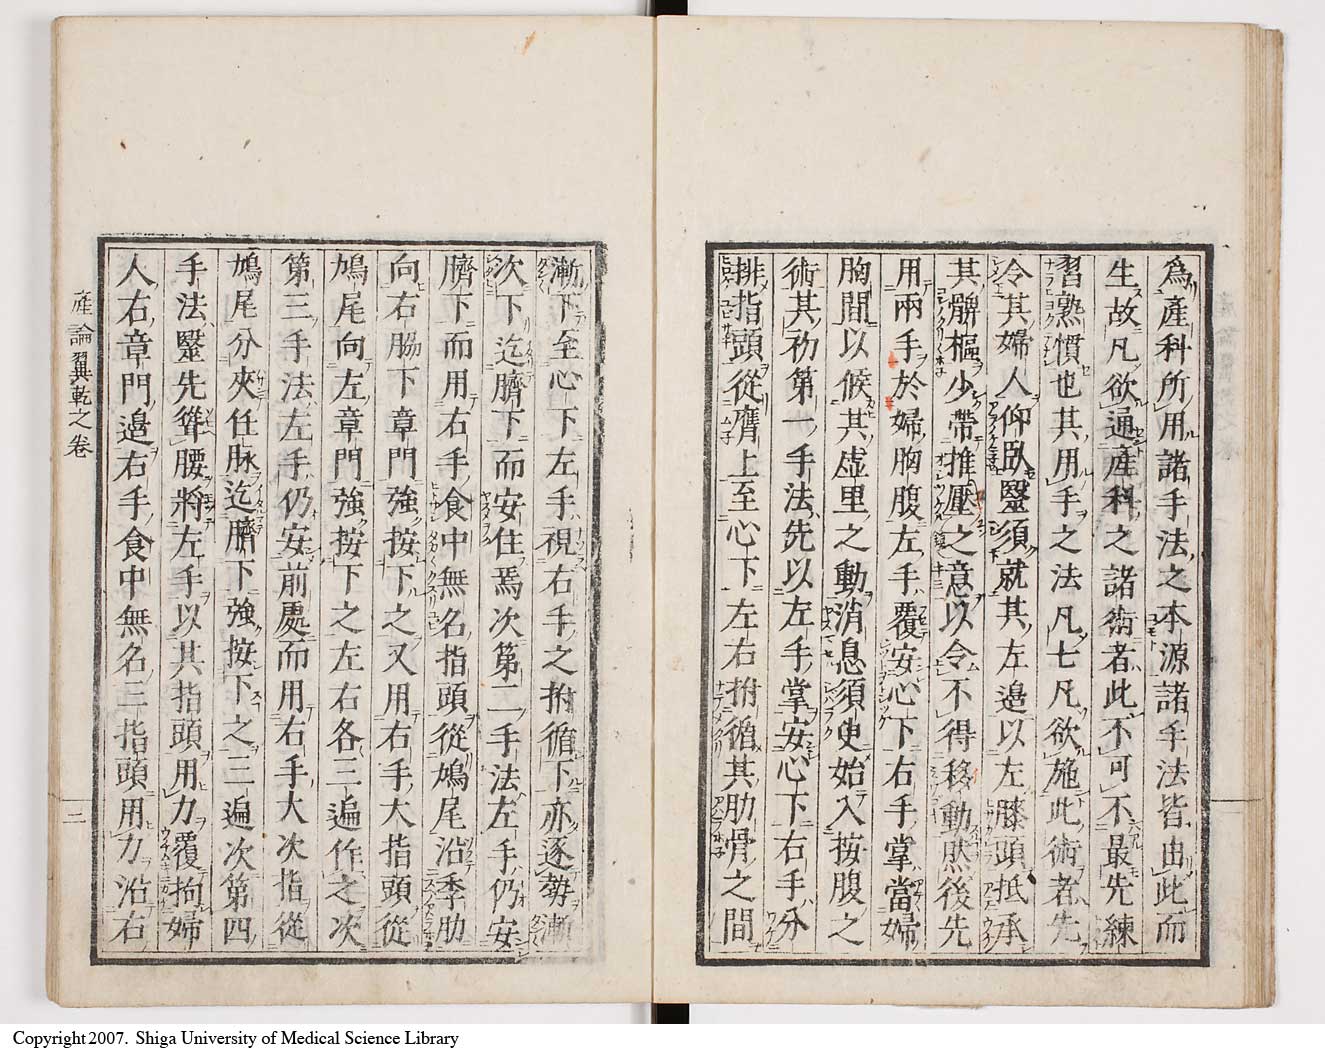 爲產科所用諸手法之本源諸手法皆由此而
生故凡欲通產科之諸術者此不可不最先練
習熟慣也其用手之法凡七凡欲施此術者先
令其婦人仰臥毉須就其左邉以左膝頭抵承
其髀樞少帶推壓之意以令不得移動然後先
用兩手於婦胸腹左手覆安心下右手掌當婦
胸間以候其虛里之動消息須臾始入按腹之
術其初第一手法先以左手掌安心下右手分
排指頭從膺上至心下左右拊循其肋骨之間
漸下至心下左手視右手之拊循下亦逐勢漸
次下迄臍下而安住焉次第二手法左手仍安
臍下而用右手食中無名指頭從鳩尾沿季肋
向右脇下章門強按下之又用右手大指頭從
鳩尾向左章門強按下之左右各三遍作之次
第三手法左手仍安前處而用右手大次指從
鳩尾分夾任脉迄臍下強按下之三遍次第四
手法毉先聳腰將左手以其指頭用力覆拘婦
人右章門邉右手食中無名三指頭用力沿右
產論翼乾之卷
二
Copyright 2007. Shiga University of Medical Science Library